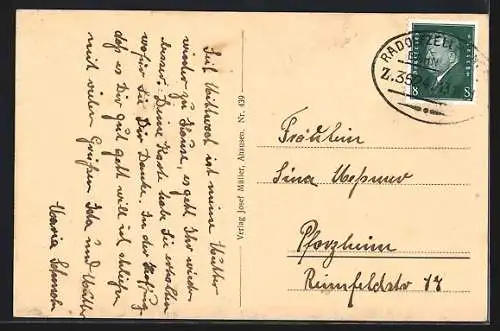 Seit Mittwoch ist meine Mutter
wieder zu Hause, es geht Ihr wieder
besser. Deine Karte habe Sie erhalten
wofür Sie Dir Danke. In der Hoffnung
daß es Dir gut geht will ich schließen
mit vielen Grüßen Ida und Mutter
Maria
Verlag Josef Müller, Nr. 439
RADOLFZELL
Z.35
8 8
Fräulein
Lina
Pforzheim
Rennfeldstr 17